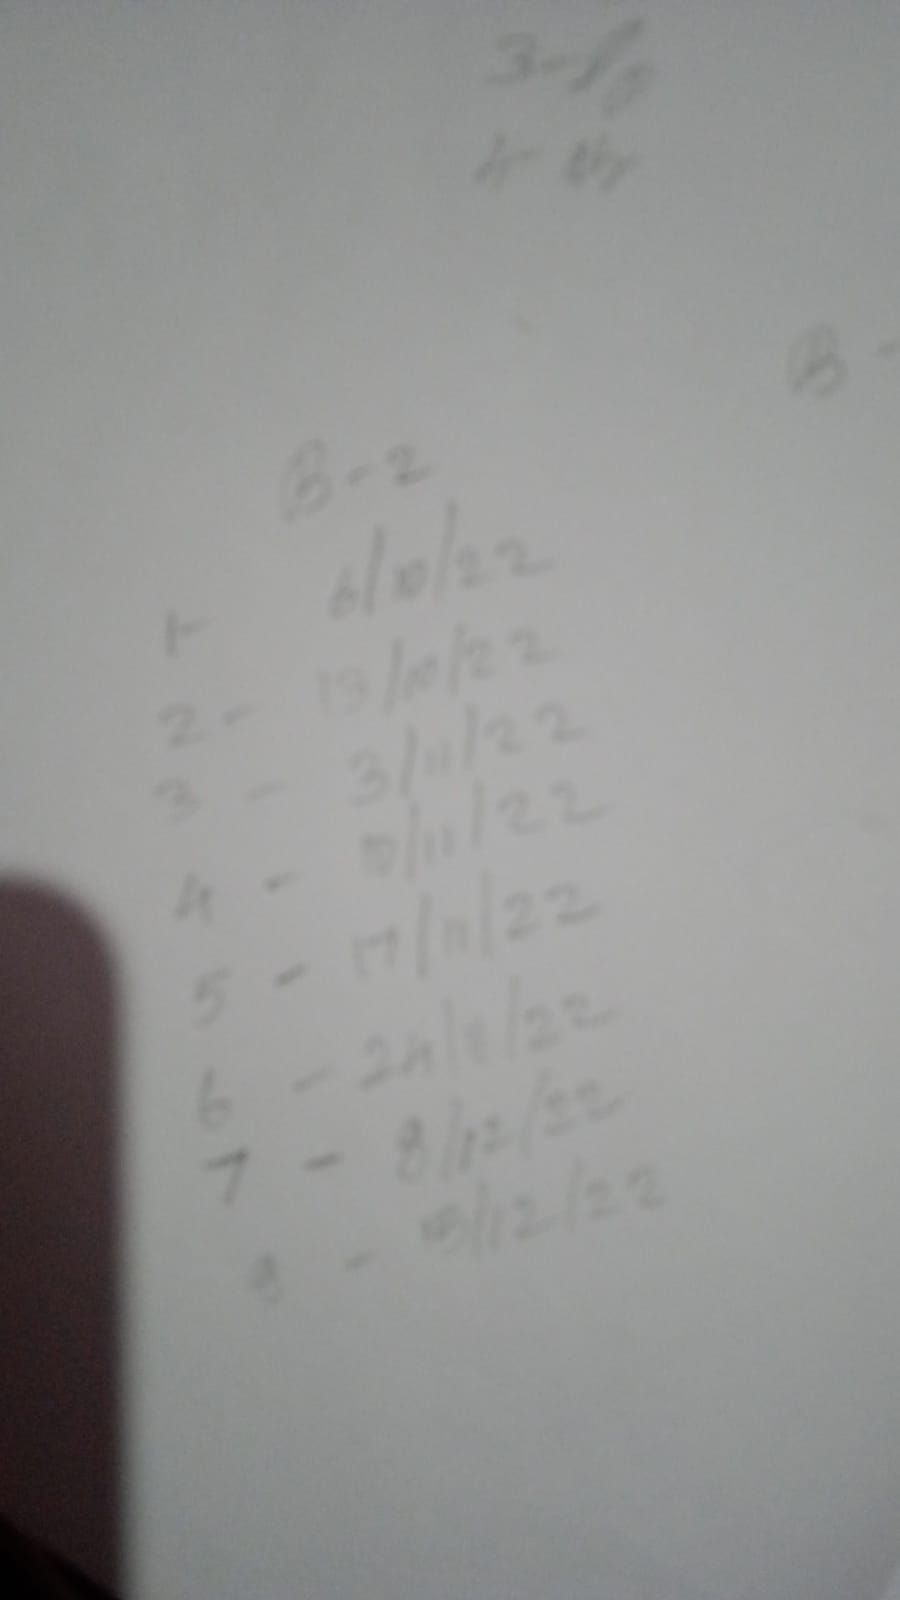 3-
4-
B-
B-2
1- 6/10/22
2- 13/10/22
3 - 3/11/22
4 - 10/11/22
5 - 17/11/22
6 - 24/11/22
7 - 8/12/22
8 - 15/12/22